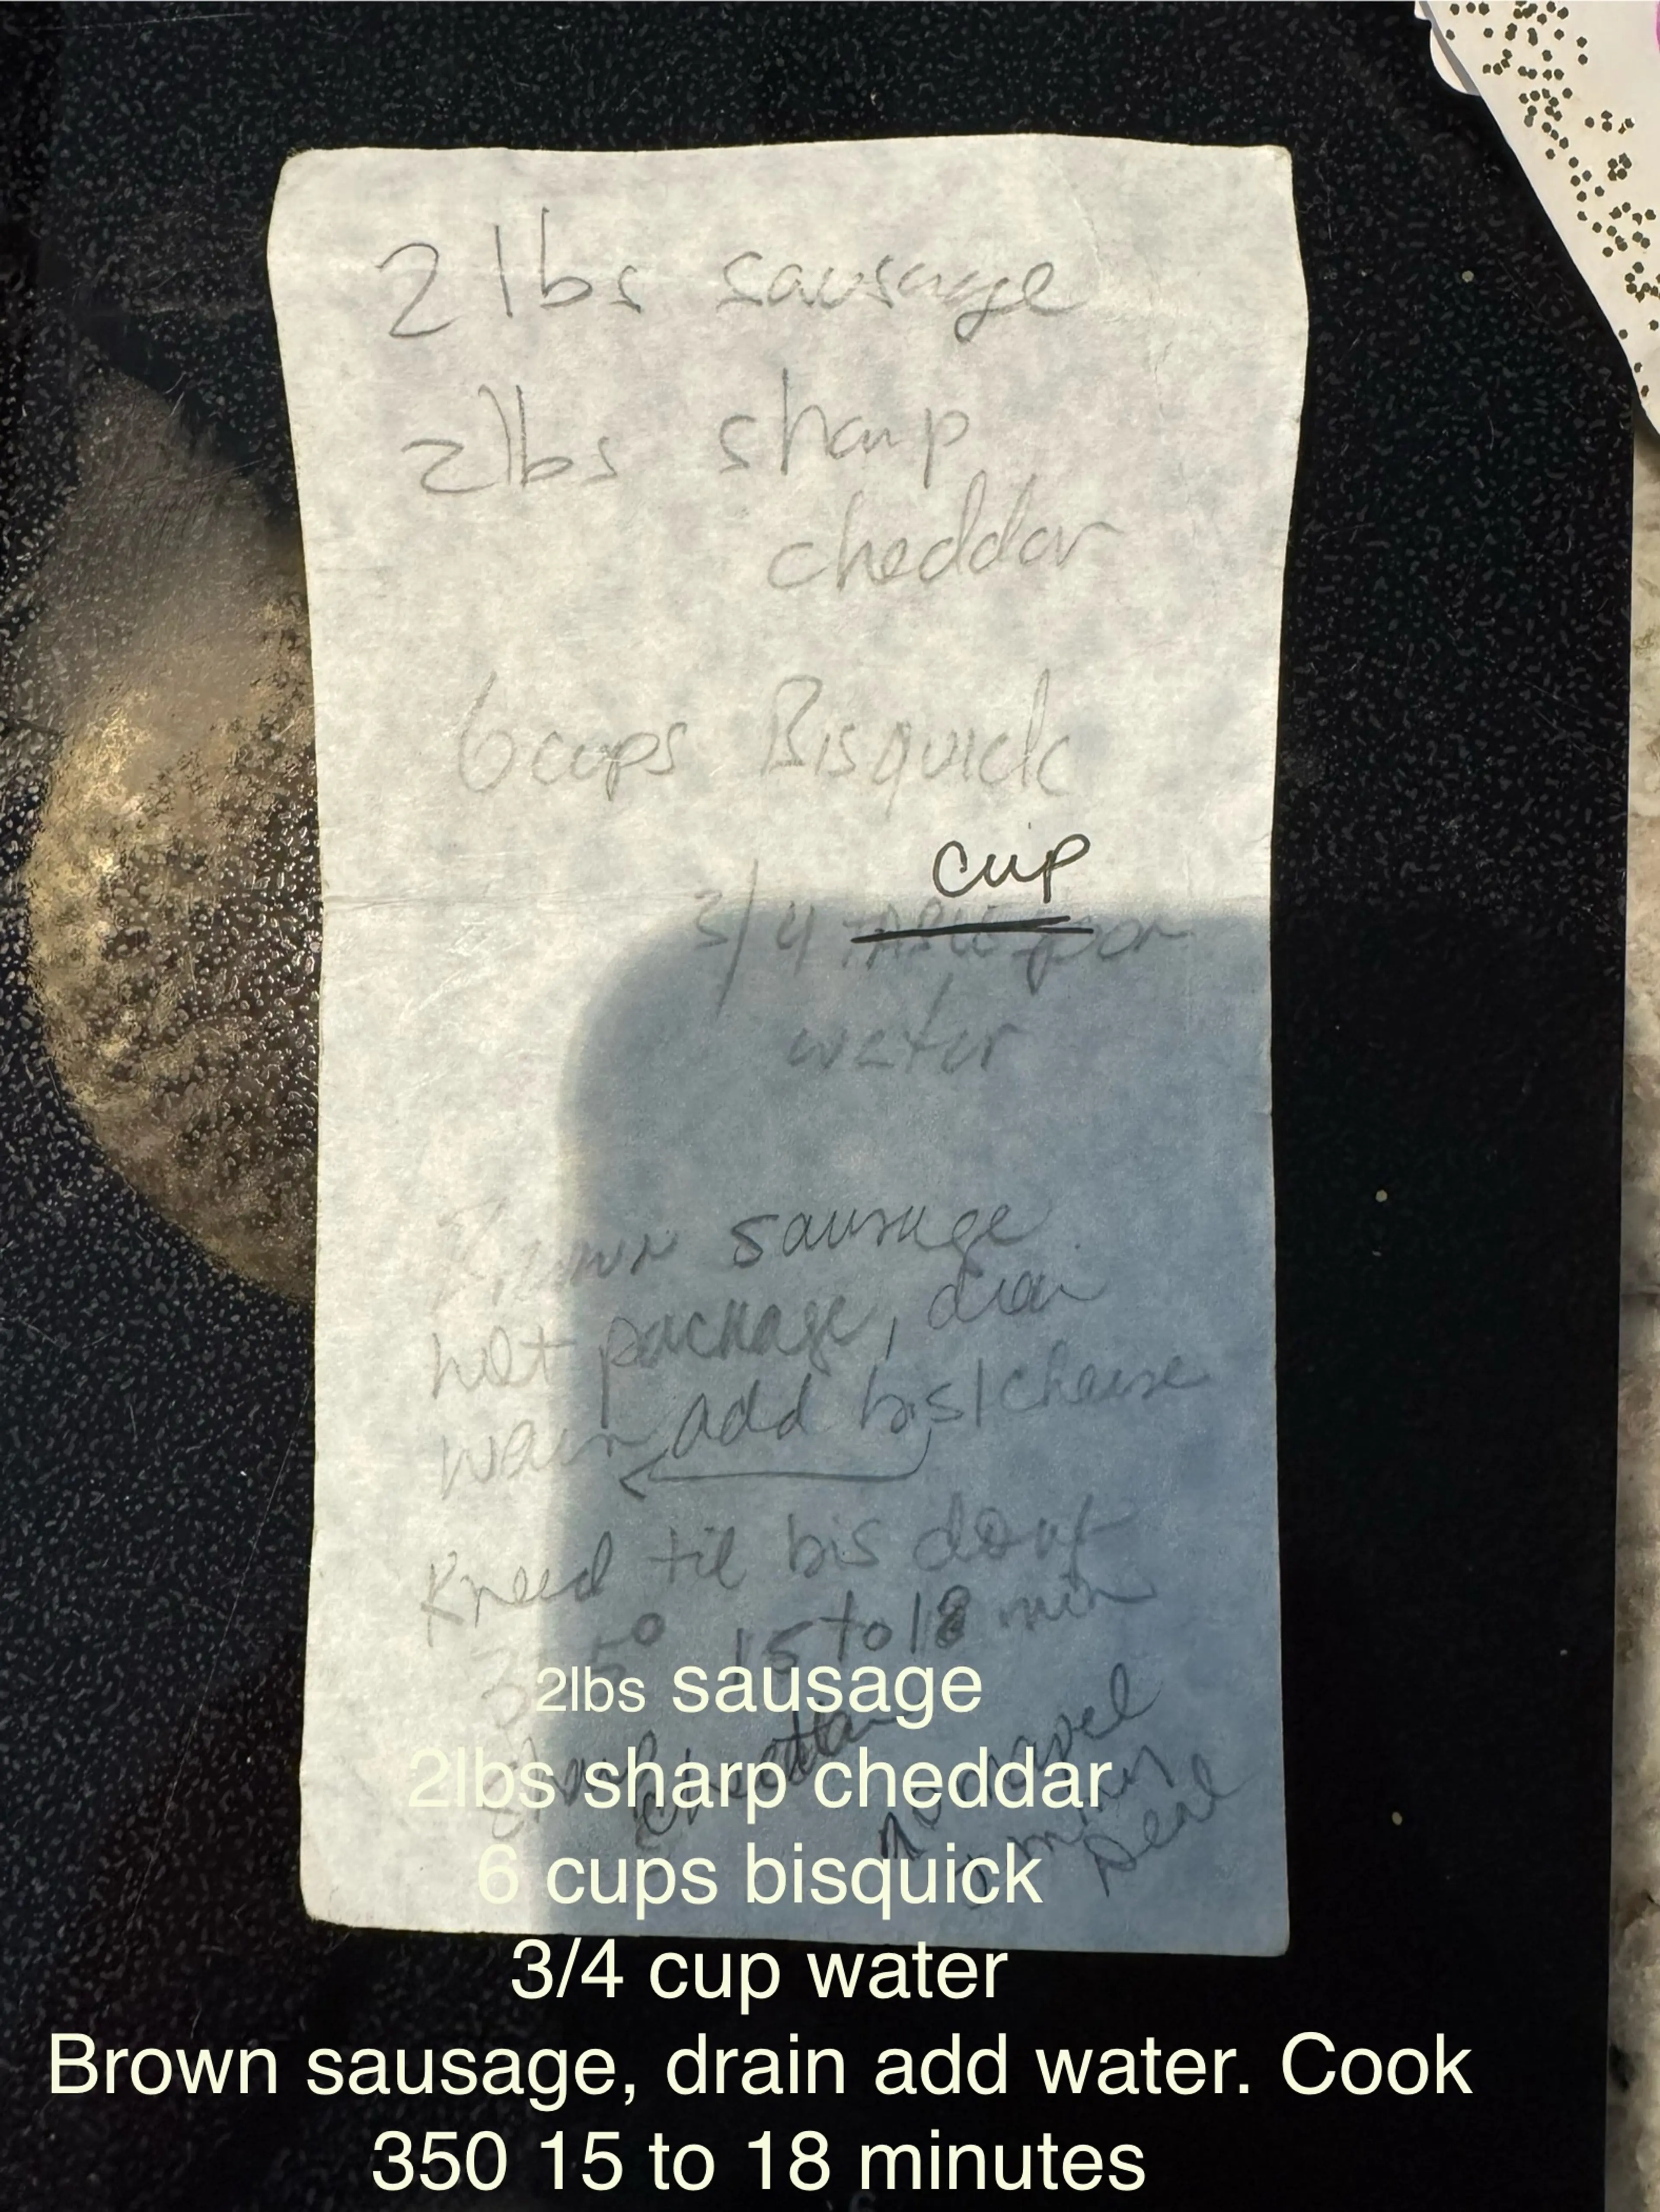 2 lbs sausage
2 lbs sharp
cheddar
6 cups Bisquick
cup
3/4
water
Brown sausage
package, drain
add bis/cheese
Kneed til bis
15 to 18 min
2lbs sausage
2lbs sharp cheddar
6 cups bisquick
3/4 cup water
Brown sausage, drain add water. Cook
350 15 to 18 minutes